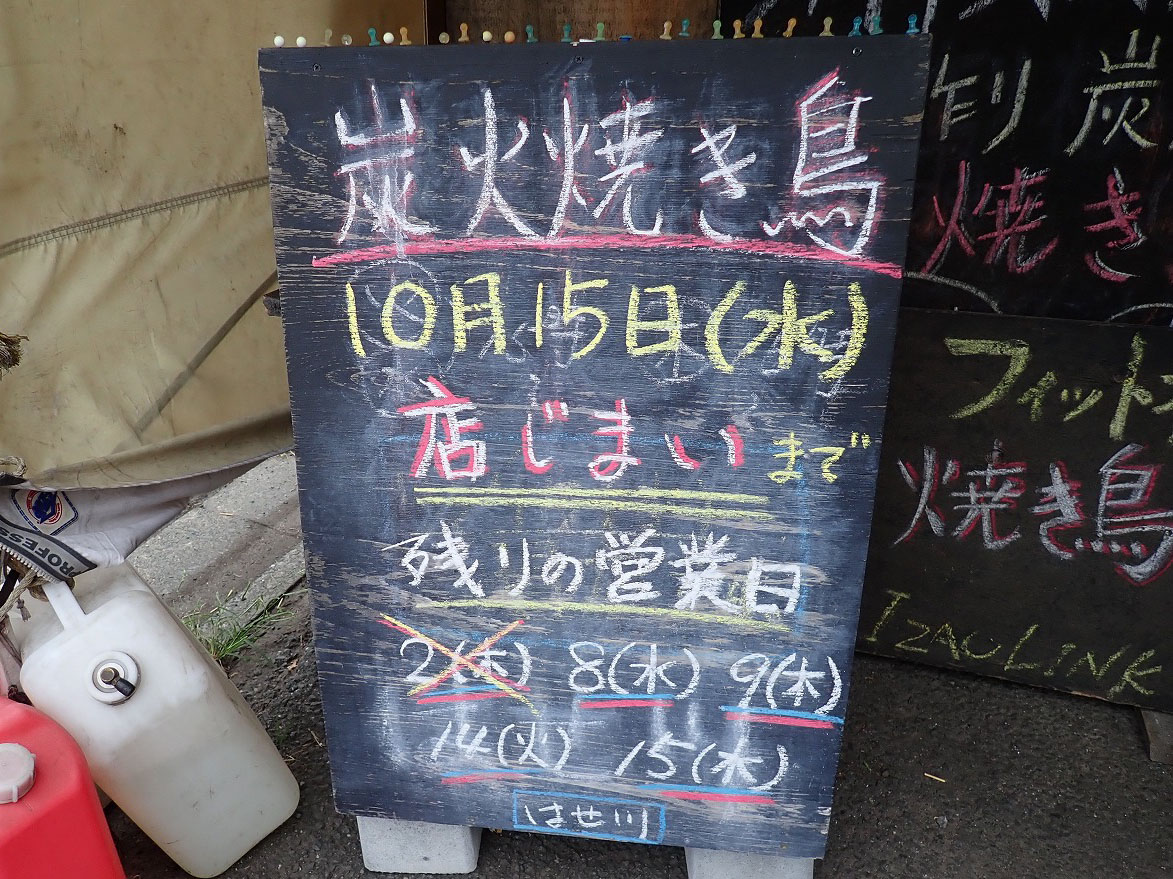 炭火焼き鳥
10月15日(水)
店じまいまで
残りの営業日
2(木) 8(水) 9(木)
14(火) 15(木)
はせ川
り炭
焼き
フィット
焼き鳥
IZAULINK
PROFESS